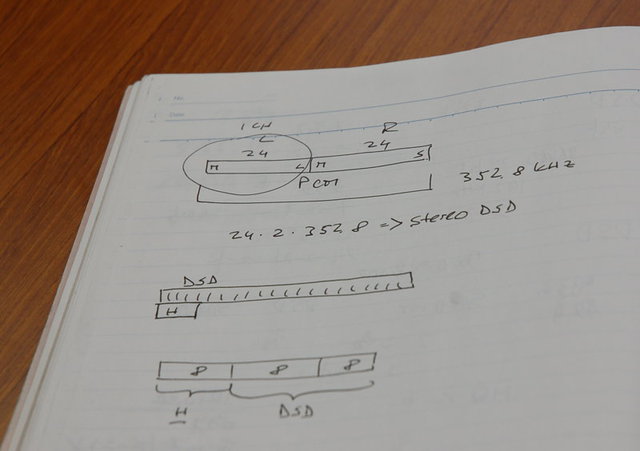 No.
Date
1 CH
L R
24 24
M L M S
PCM
352.8 KHz
24.2.352.8 => Stereo DSD
DSD
H
8 8 8
H DSD